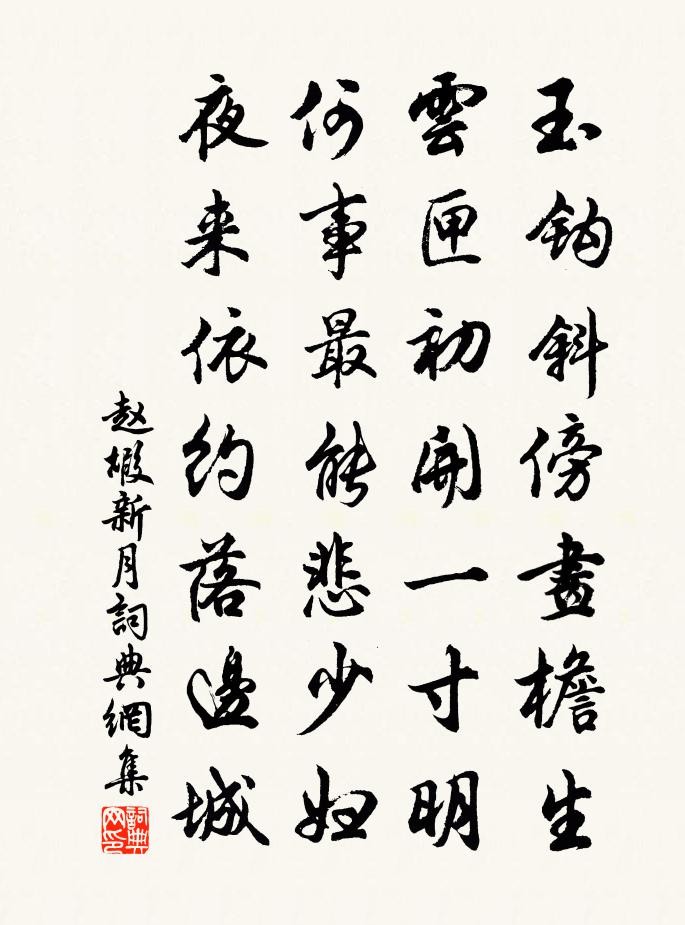 玉鈎斜傍畫檐生
雲匣初開一寸明
何事最能悲少妇
夜来依约落邊城
赵嘏新月詞典網集
詞典网印